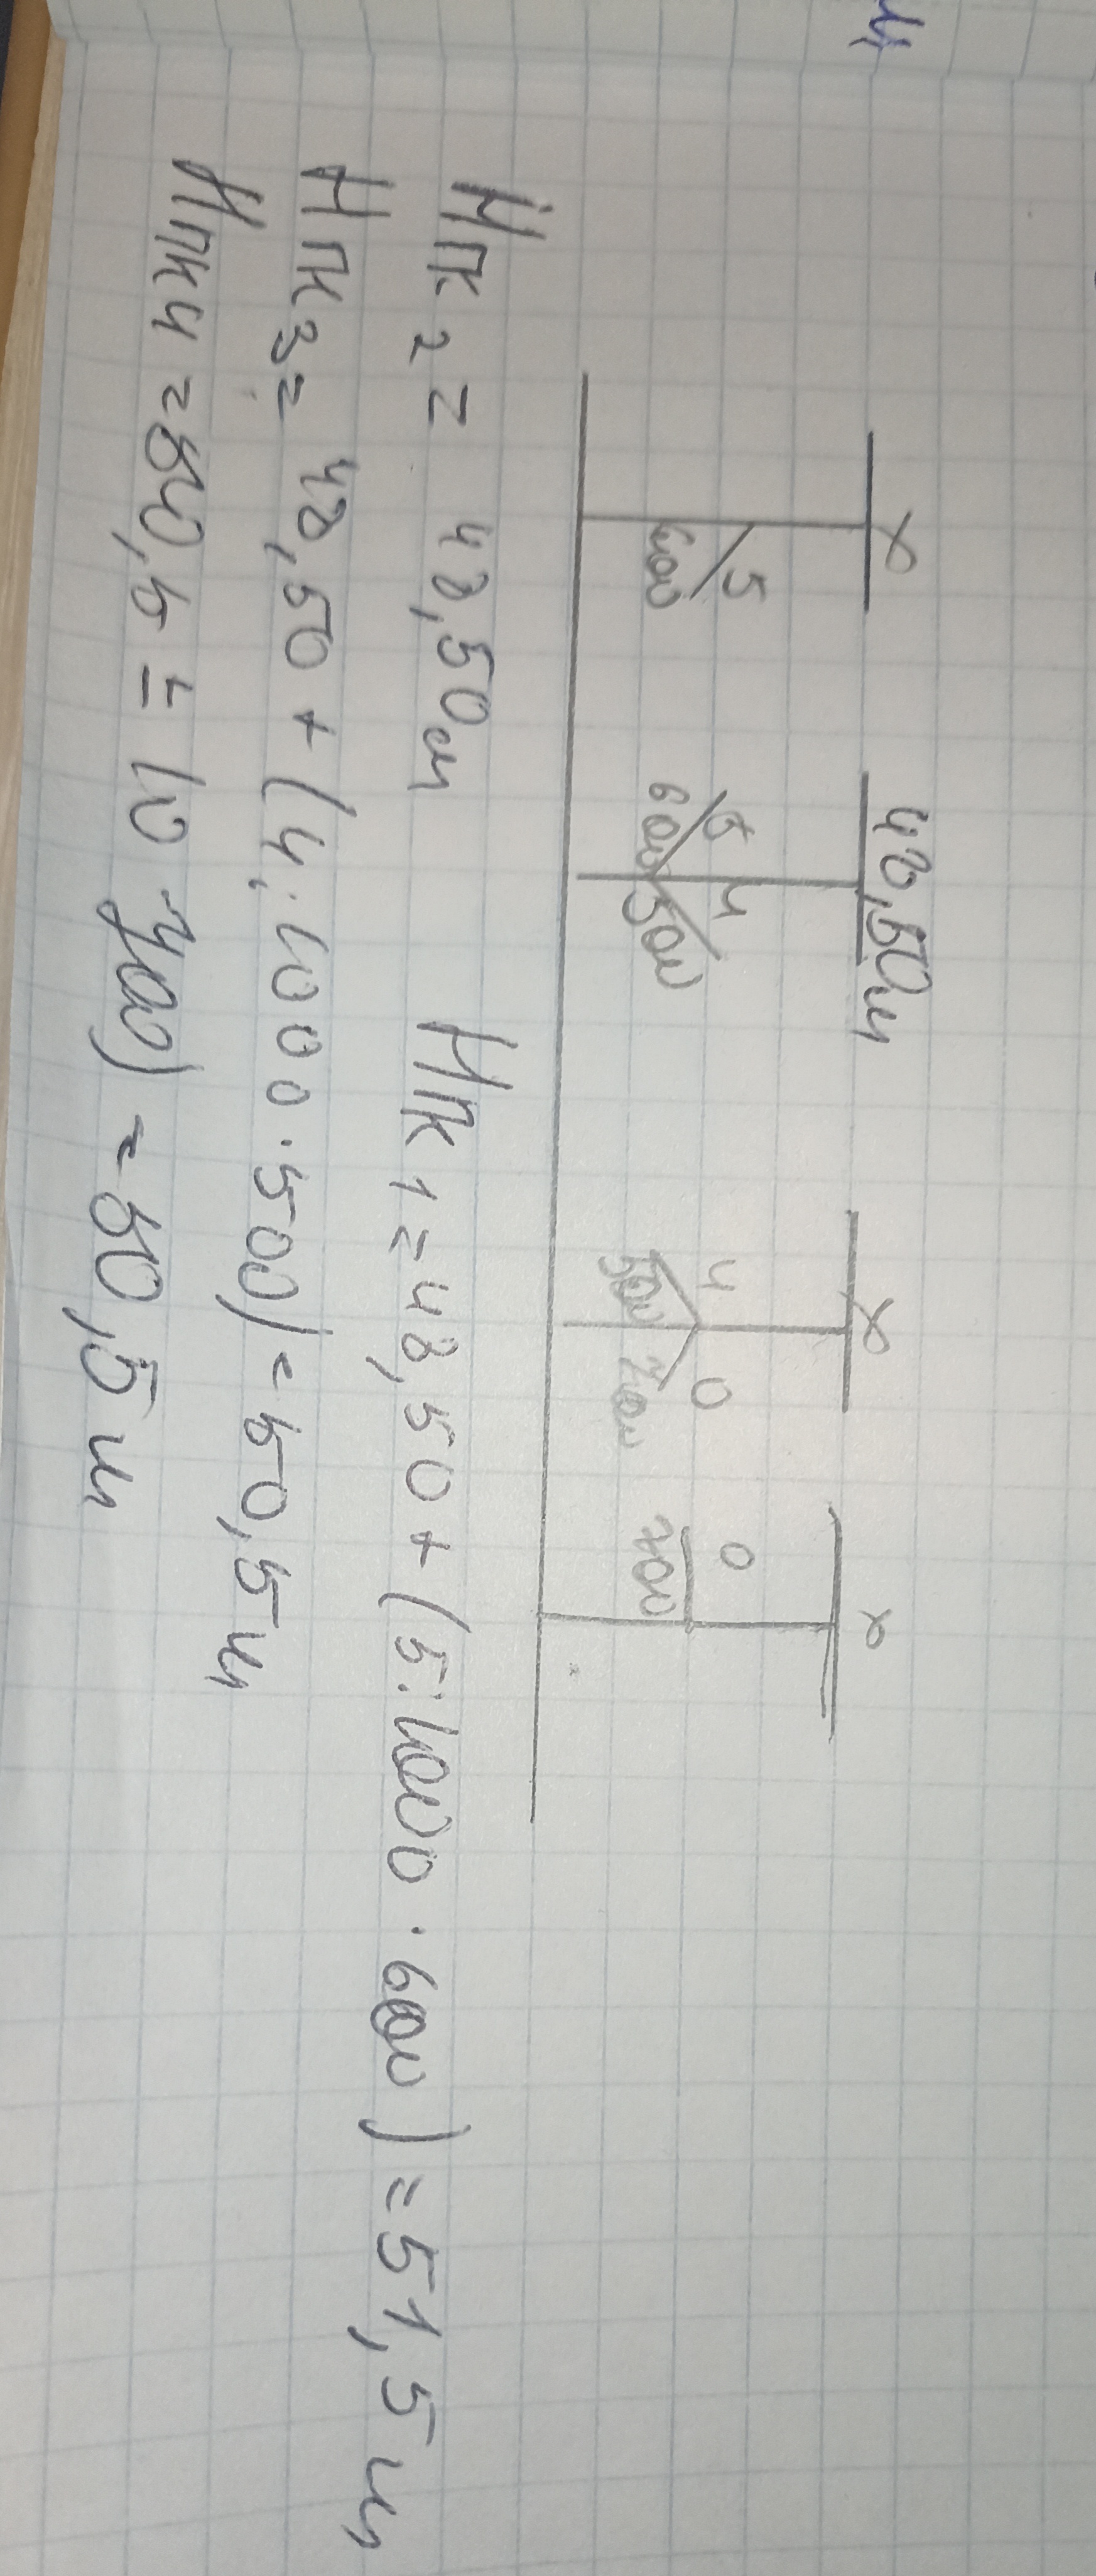 x 48,50м x x
5 5 4 4 0 0
600 600 500 500 700 700
Нпк 2 = 48,50м Нпк 1 = 48,50 + (5:1000 · 600) = 51,5 м
Нпк 3 = 48,50 + (4:1000 · 500) = 50,5 м
Нпк 4 = 50,5 ± (0 · 700) = 50,5 м